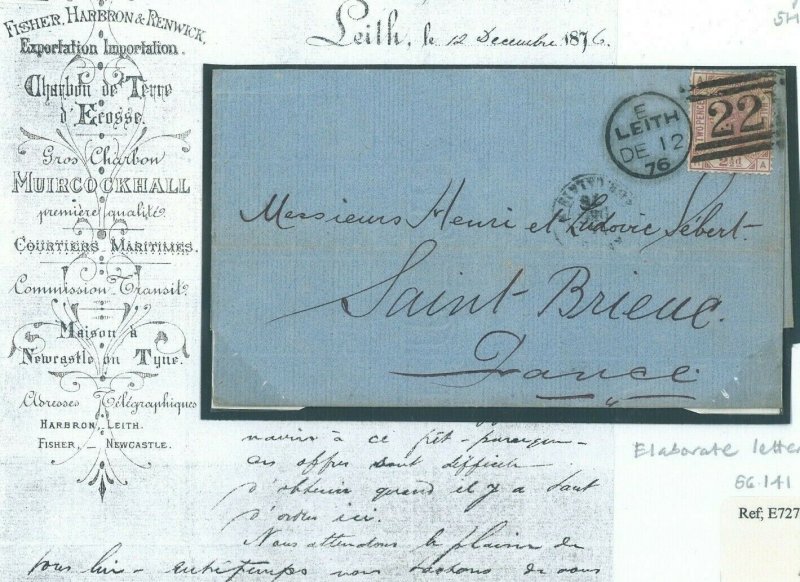 FISHER, HARBRON & RENWICK,
Exportation Importation.
Charbon de Terre
d'Ecosse.
Gros Charbon
MUIRCOCKHALL
première qualité
COURTIERS MARITIMES.
Commission Transit.
Maison à
Newcastle on Tyne.
Adresses Télégraphiques
HARBRON, LEITH.
FISHER, — NEWCASTLE.
Leith, le 12 Decembre 1876.
E
LEITH
DE 12
76
22
TWO PENCE
2½d
A
Messieurs Henri et Ludovic Sébert
Saint-Brieuc.
France
navire à ce frêt
offres sont difficile
d'obtenir quand il y a tant
d'ordres ici.
Nous attendons le plaisir de
vous lire nous
Elaborate letter
SG 141
Ref; E727